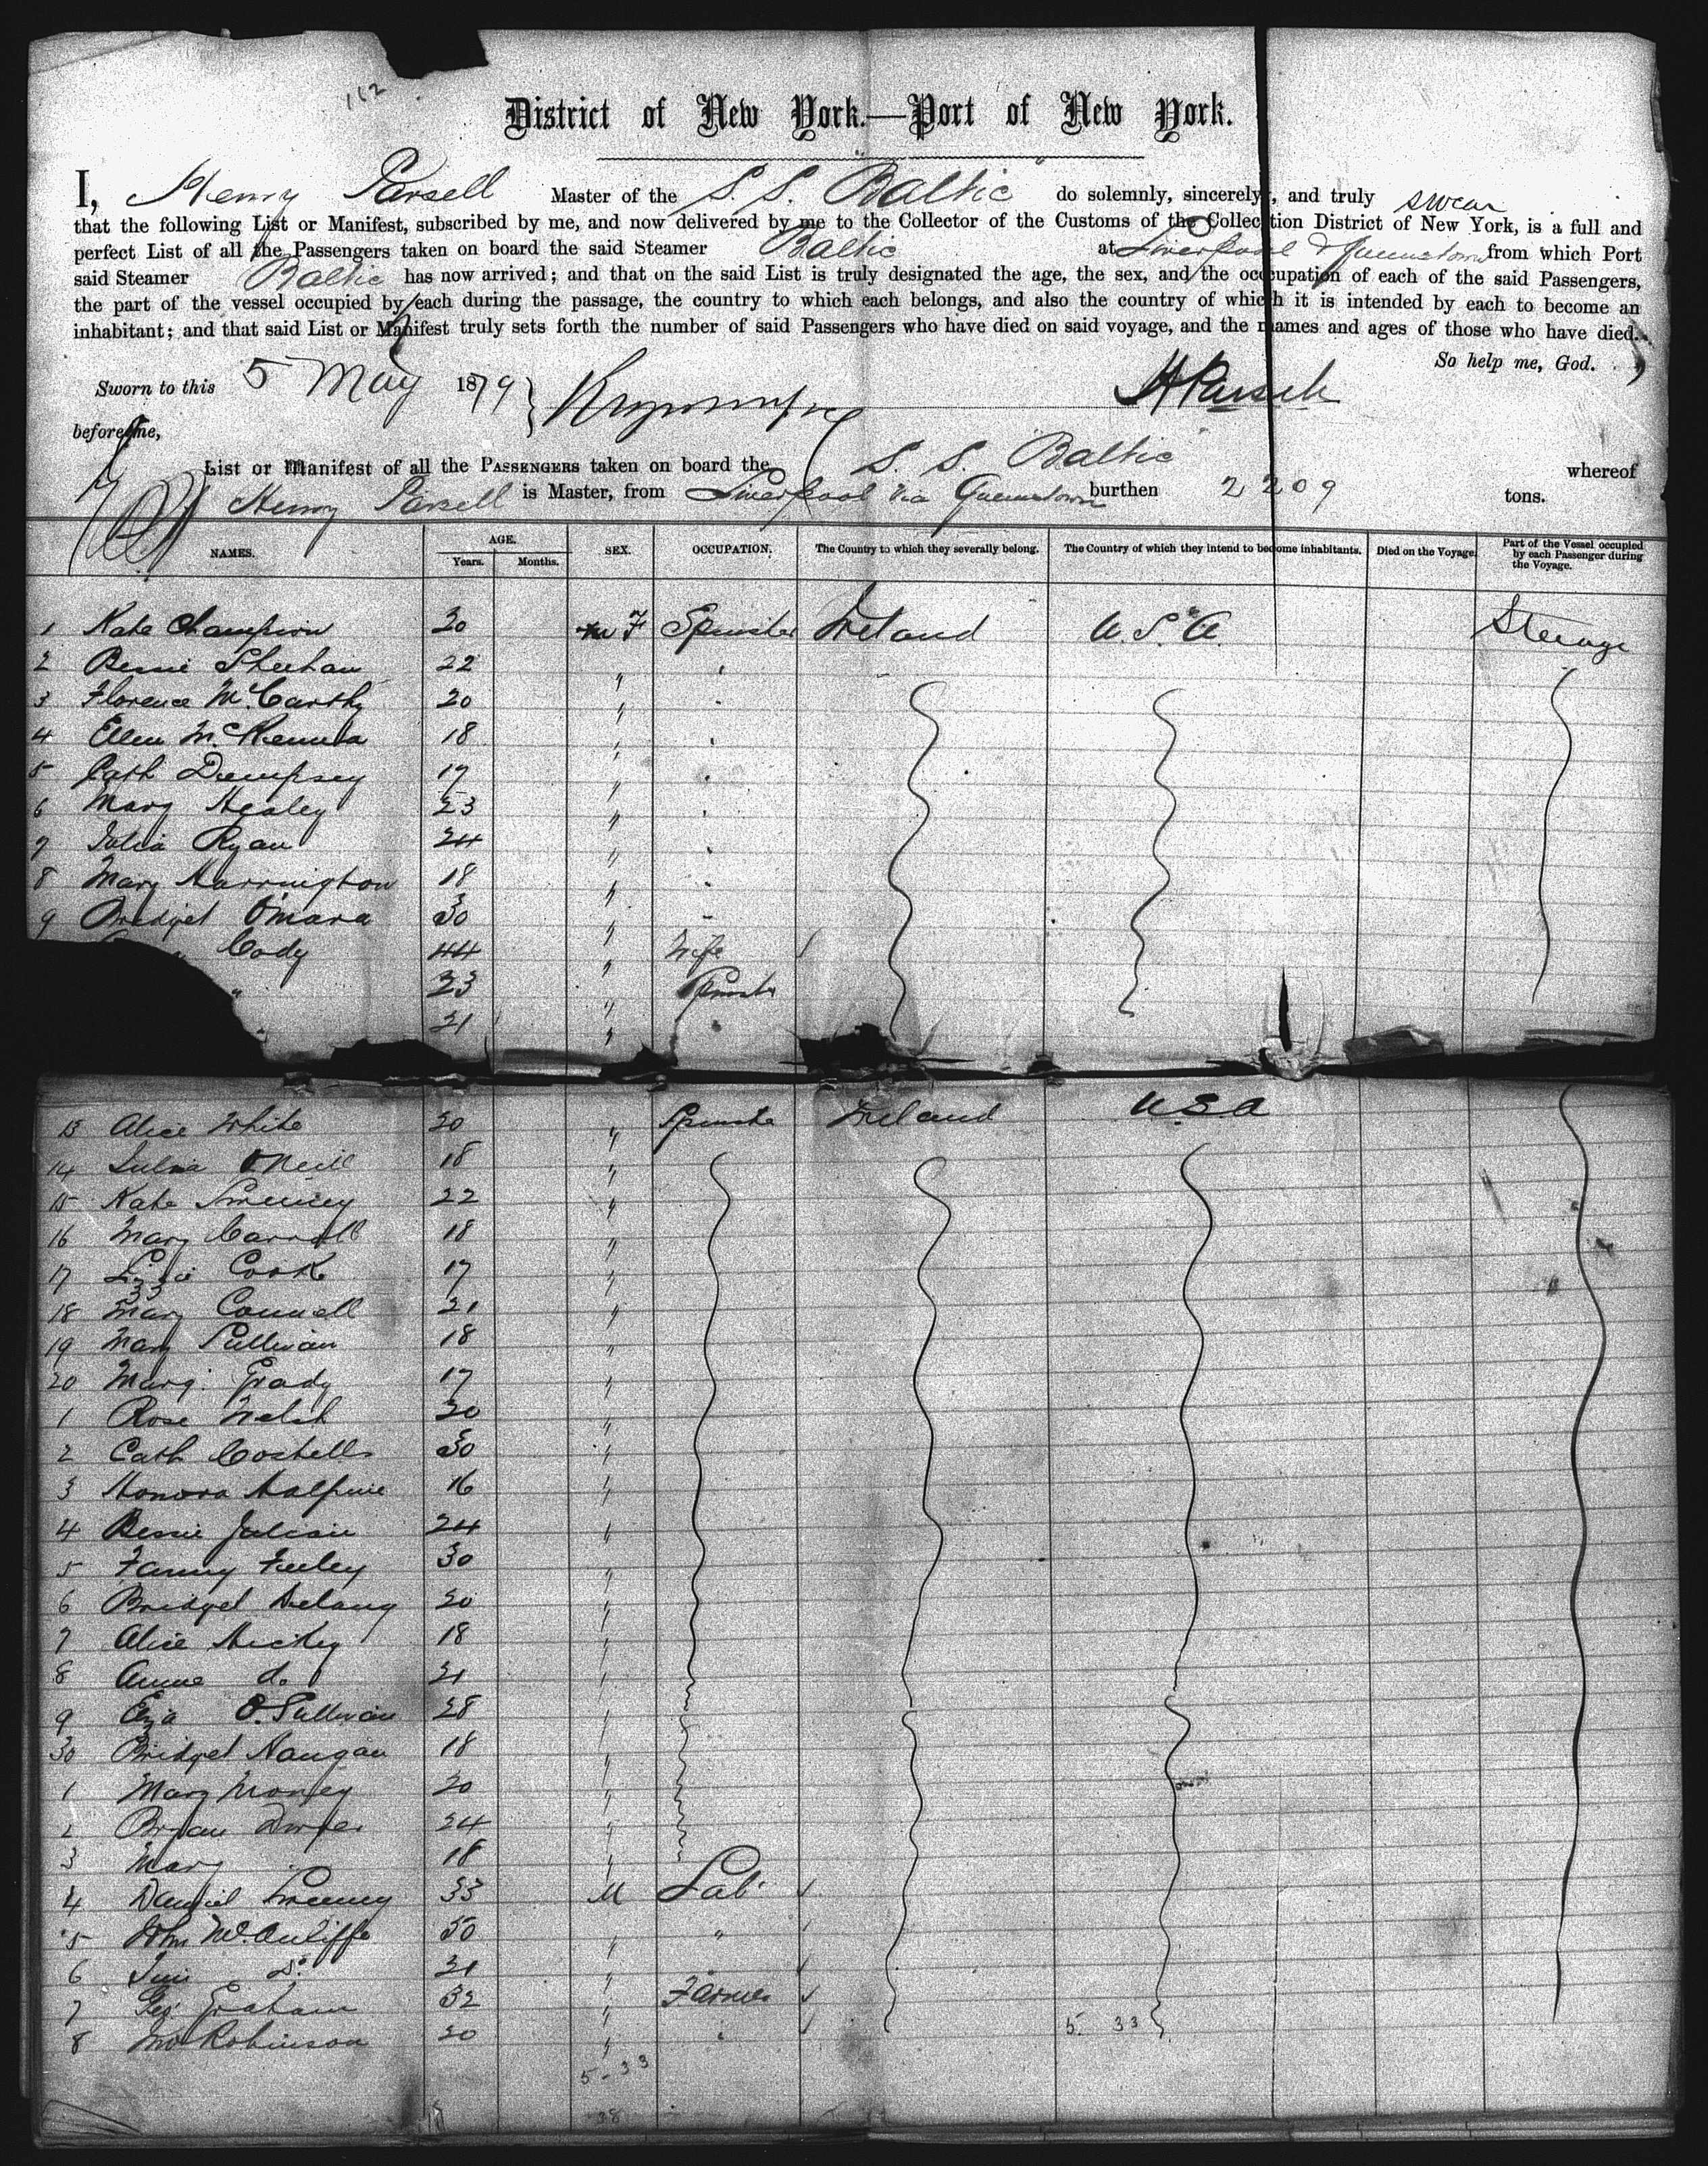 162
District of New York.—Port of New York.
I, Henry Parsell Master of the S. S. Baltic do solemnly, sincerely, and truly swear
that the following List or Manifest, subscribed by me, and now delivered by me to the Collector of the Customs of the Collection District of New York, is a full and
perfect List of all the Passengers taken on board the said Steamer Baltic at Liverpool & Queenstown from which Port
said Steamer Baltic has now arrived; and that on the said List is truly designated the age, the sex, and the occupation of each of the said Passengers,
the part of the vessel occupied by each during the passage, the country to which each belongs, and also the country of which it is intended by each to become an
inhabitant; and that said List or Manifest truly sets forth the number of said Passengers who have died on said voyage, and the names and ages of those who have died.
So help me, God.
Sworn to this 5 May 1879 } H Parsell
before me,
List or Manifest of all the PASSENGERS taken on board the S. S. Baltic whereof
Henry Parsell is Master, from Liverpool via Queenstown burthen 2209 tons.
NAMES. AGE. Years. Months. SEX. OCCUPATION. The Country to which they severally belong. The Country of which they intend to become inhabitants. Died on the Voyage. Part of the Vessel occupied by each Passenger during the Voyage.
1 Kate Champion 20 F Spinster Ireland U.S.A. Steerage
2 Bessie Sheehan 22 "
3 Florence McCarthy 20 "
4 Ellen McKenna 18 "
5 Cath Dempsey 17 "
6 Mary Healey 23 "
7 Julia Ryan 24 "
8 Mary Harrington 18 "
9 Bridget O'Mara 30 "
Cody 44 " Wife
" 23 " Spinster
" 21 "
13 Alice White 20 " Spinster Ireland USA
14 O'Neill 18 "
15 Kate Sweeney 22 "
16 Mary Carroll 18 "
17 Lizzie Cook 17 "
18 Mary Connell 21 "
19 Mary Sullivan 18 "
20 Marg. Grady 17 "
1 Rose Welsh 20 "
2 Cath Costello 30 "
3 Honora Halpine 16 "
4 Bessie 24 "
5 Fanny Feeley 30 "
6 Bridget Delany 20 "
7 Alice Hickey 18 "
8 Annie do 21 "
9 Eliza O'Sullivan 28 "
30 Bridget Hangan 18 "
1 Mary Money 20 "
2 Dwyer 24 "
3 Mary 18 "
4 Daniel Sweeney 33 M Lab.
5 John McAuliffe 50 " "
6 Do 21 "
7 Geo. Graham 32 " Farmer
8 Jno Robinson 20 "
5. 33
5-33
38